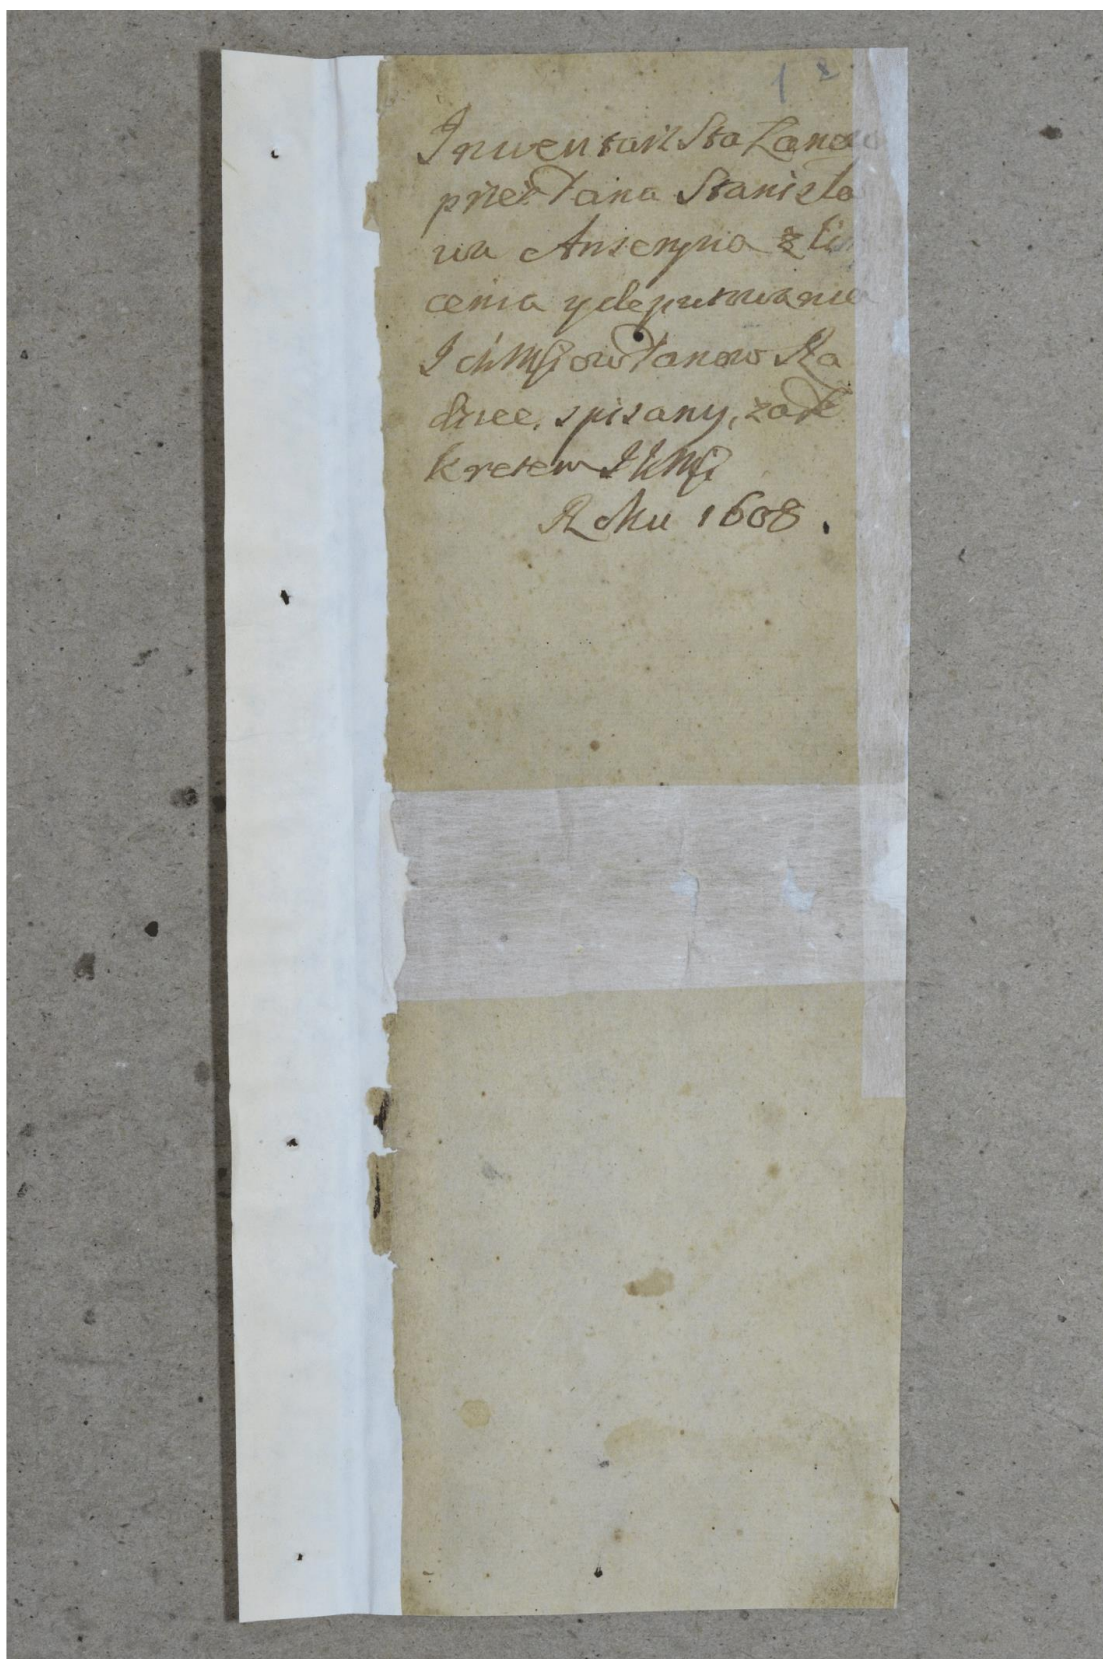 1
Inwentarz Sta
przez Pana Stanisła
wa Anseryna z
cenia y deputowania
Ich Mści ow Panow Ra
dziec, spisany, za de
kretem IKMści
Roku 1608.